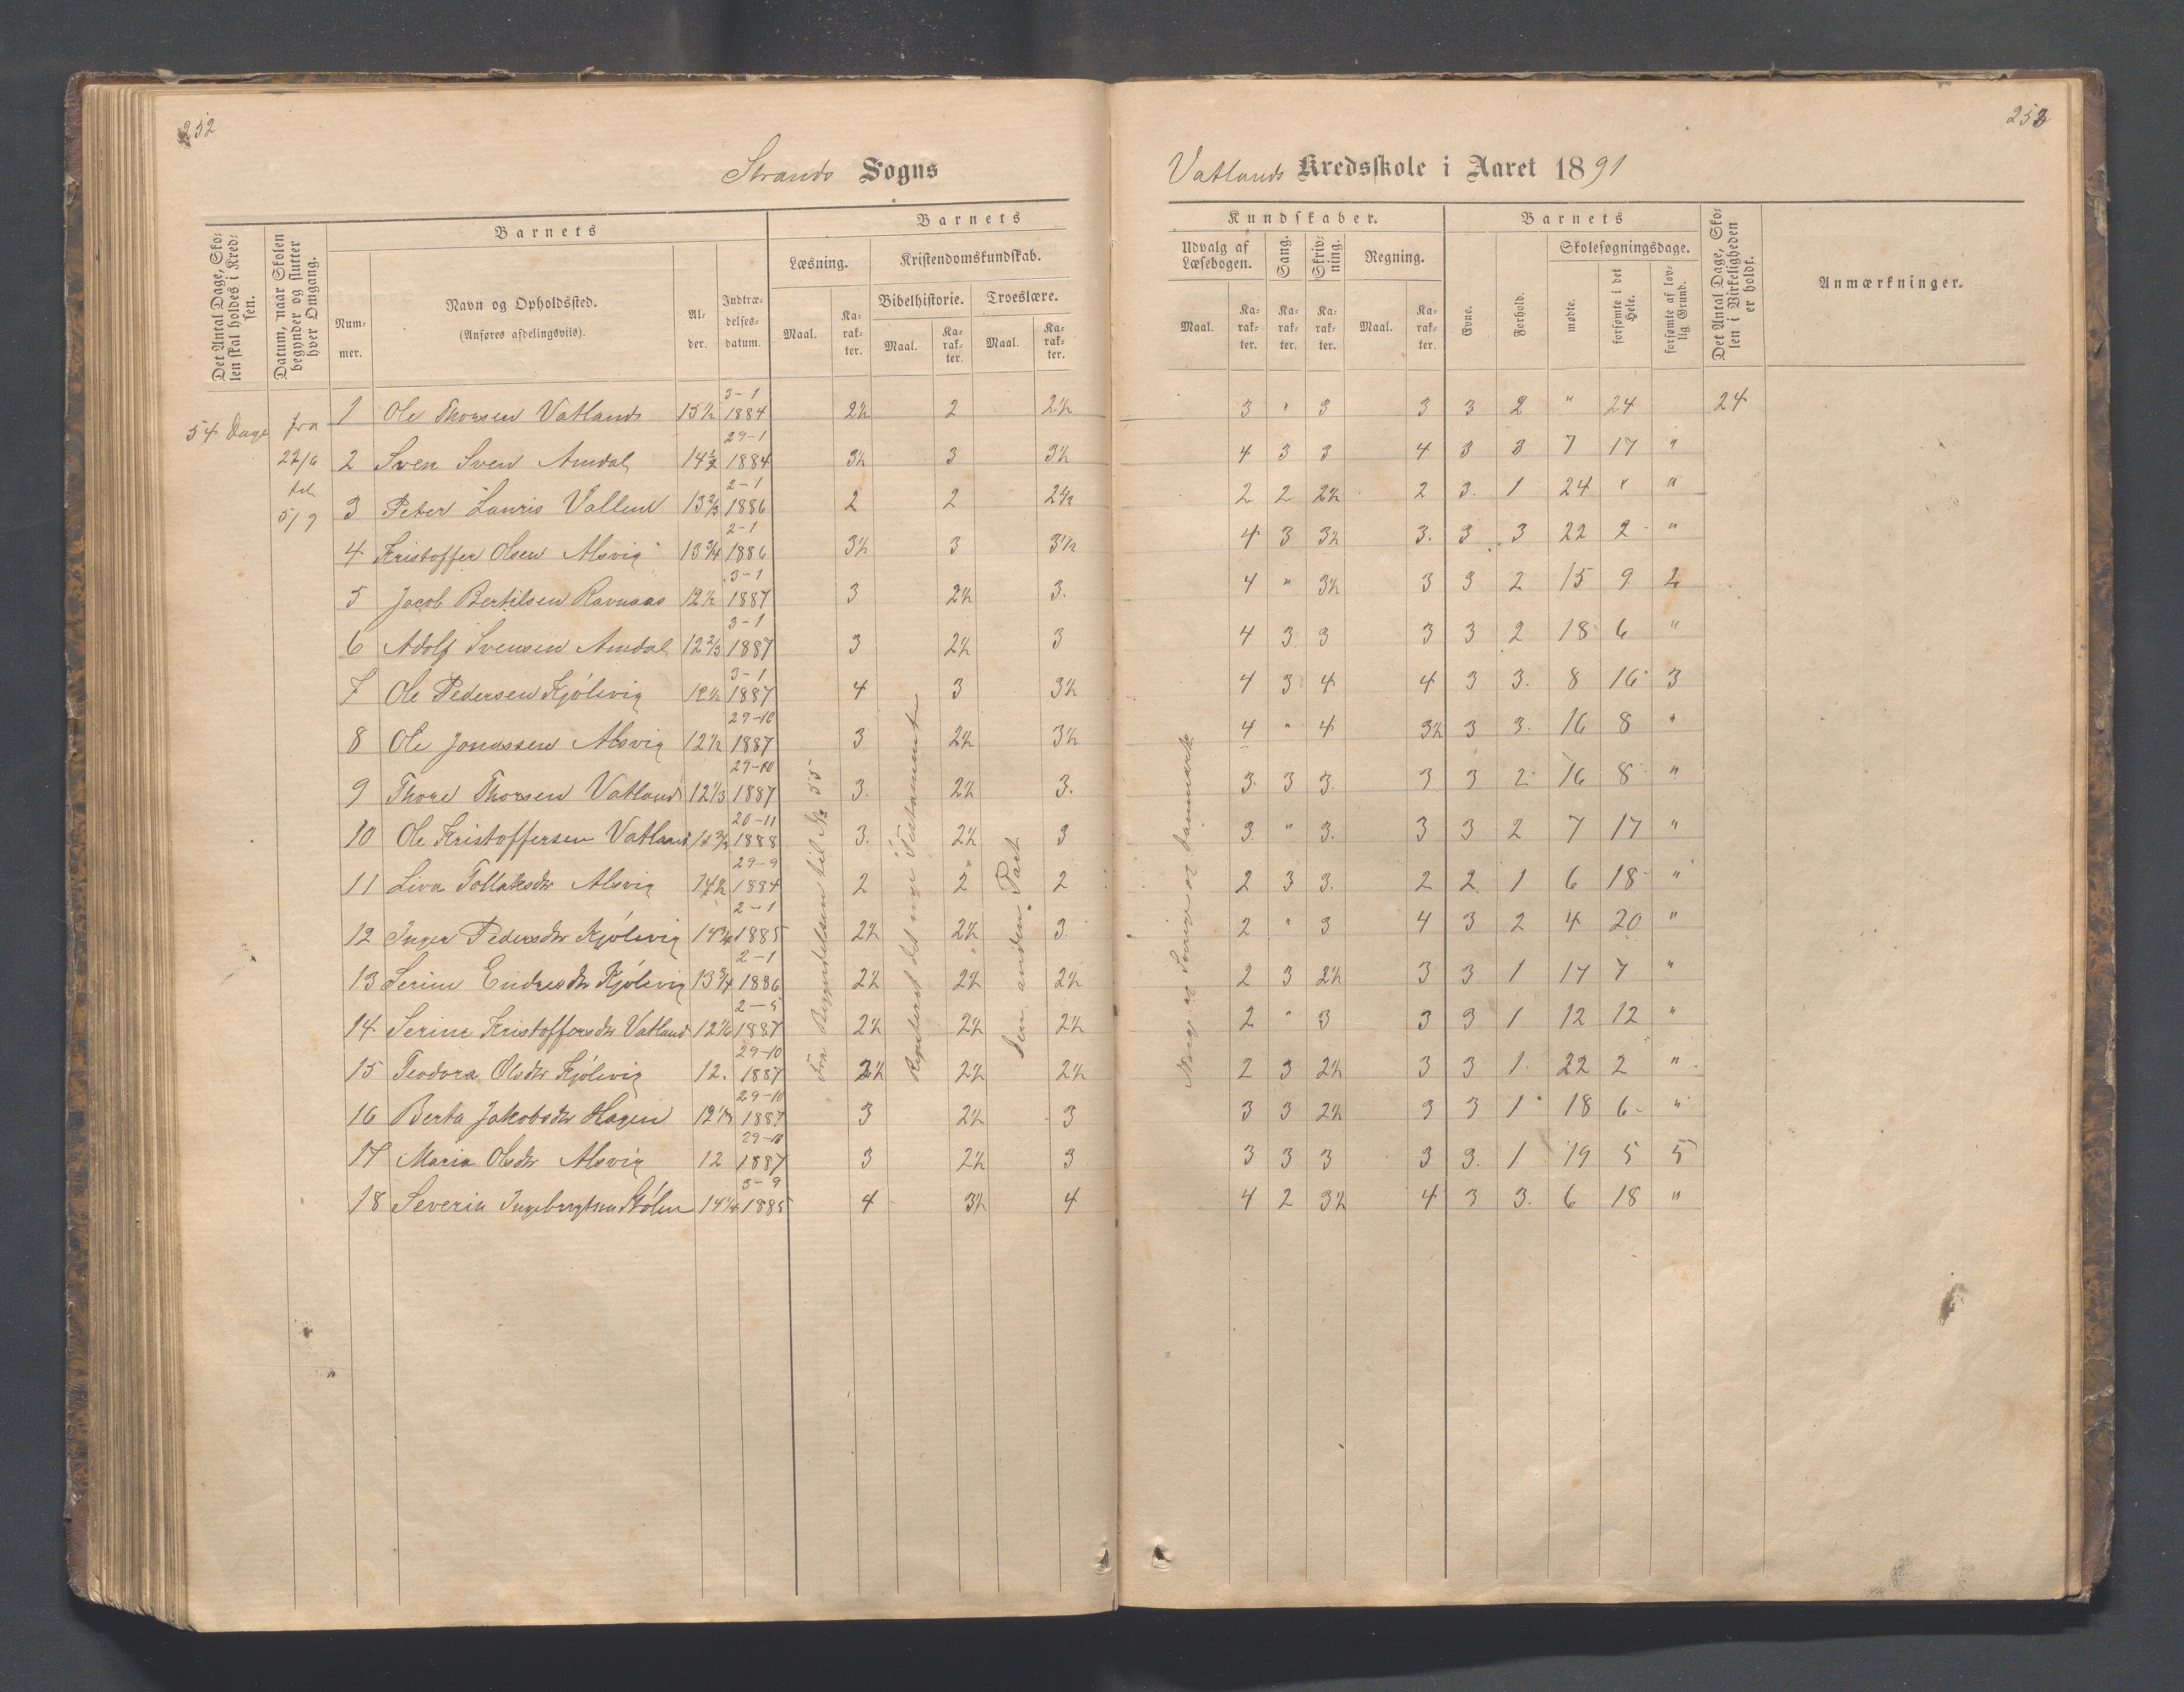 252
253
Strands Sogns
Vatlands Kredsskole i Aaret 1891
Det Antal Dage, Skolen skal holdes i Kredsen.
Datum, naar Skolen begynder og slutter hver Omgang.
Barnets
Nummer.
Navn og Opholdssted.
(Anføres afdelingsviis).
Alder.
Indtrædelsesdatum.
Barnets
Læsning.
Maal.
Karakter.
Kristendomskundskab.
Bibelhistorie.
Maal.
Karakter.
Troeslære.
Maal.
Karakter.
Kundskaber.
Udvalg af Læsebogen.
Maal.
Karakter.
Sang.
Karakter.
Skrivning.
Karakter.
Regning.
Maal.
Karakter.
Barnets
Evne.
Forhold.
Skolesøgningsdage.
mødte.
forsømte i det Hele.
forsømte af lovlig Grund.
Det Antal Dage, Skolen i Virkeligheden er holdt.
Anmærkninger.
54 Dage
fra
22/6
til
5/9
1 Ole Thorsen Vatland 15½ 3-1 1884 2½ 2 2½ 3 " 3 3 3 2 " 24 24
2 Sven Sven Amdal 14½ 29-1 1884 3½ 3 3½ 4 3 3 4 3 3 7 17 "
3 Peter Lauris Vallem 13⅔ 2-1 1886 2 2 2½ 2 2 2½ 2 3. 1 24 " "
4 Kristoffer Olsen Alsvig 13¾ 2-1 1886 3½ 3 3½ 4 3 3½ 3. 3 3 22 2 "
5 Jacob Bertilsen Ravnaas 12½ 3-1 1887 3 2½ 3. 4 " 3½ 3 3 2 15 9 2
6 Adolf Svensen Amdal 12⅔ 3-1 1887 3 2½ 3 4 3 3 3 3 2 18 6 "
7 Ole Pedersen Kjölevig 12½ 3-1 1887 4 3 3½ 4 3 4 4 3 3. 8 16 3
8 Ole Jonassen Alsvig 12½ 29-10 1887 3 2½ 3½ 4 " 4 3½ 3 3. 16 8 "
9 Thore Thorsen Vatland 12⅓ 29-10 1887 3. 2½ 3. 3. 3 3. 3 3 2 16 8 "
10 Ole Kristoffersen Vatland 20-11 1888 3. 2½ 3 3. " 3. 3 3 2 7 17 "
11 Liva Tollaksdtr Alsvig 14½ 29-9 1884 2 2 2 2 3 3. 2 2 1 6 18 "
12 Inger Pedersdtr Kjölevig 14¾ 2-1 1885 2½ 2½ 3. 2 " 3 4 3 2 4 20 "
13 Serine Endresdtr Kjölevig 13¾ 2-1 1886 2½ 2½ 2½ 2 3 2½ 3 3 1 17 7 "
14 Serine Kristoffersdtr Vatland 12⅙ 2-5 1887 2½ 2½ 2½ 2 " 3 3 3 1 12 12 "
15 Teodora Olsdtr Kjölevig 12. 29-10 1887 2½ 2½ 2½ 2 3 2½ 3 3 1. 22 2 "
16 Berta Jakobsdtr Hagen 12⅓ 29-10 1887 3 2½ 3 3 3 2½ 3 3 1 18 6 "
17 Maria Olsdtr Alsvig 12 29-10 1887 3 2½ 3 3 3 3 3 3. 1 19 5 5
18 Severin Ingebregtsen 14¼ 3-9 1885 4 3½ 4 4 2 3½ 4 3 3. 6 18 "
Fra Begyndelsen til No 55
Repeteret det nye Testamente
Den anden Part
Norge og Sverige og Danmark